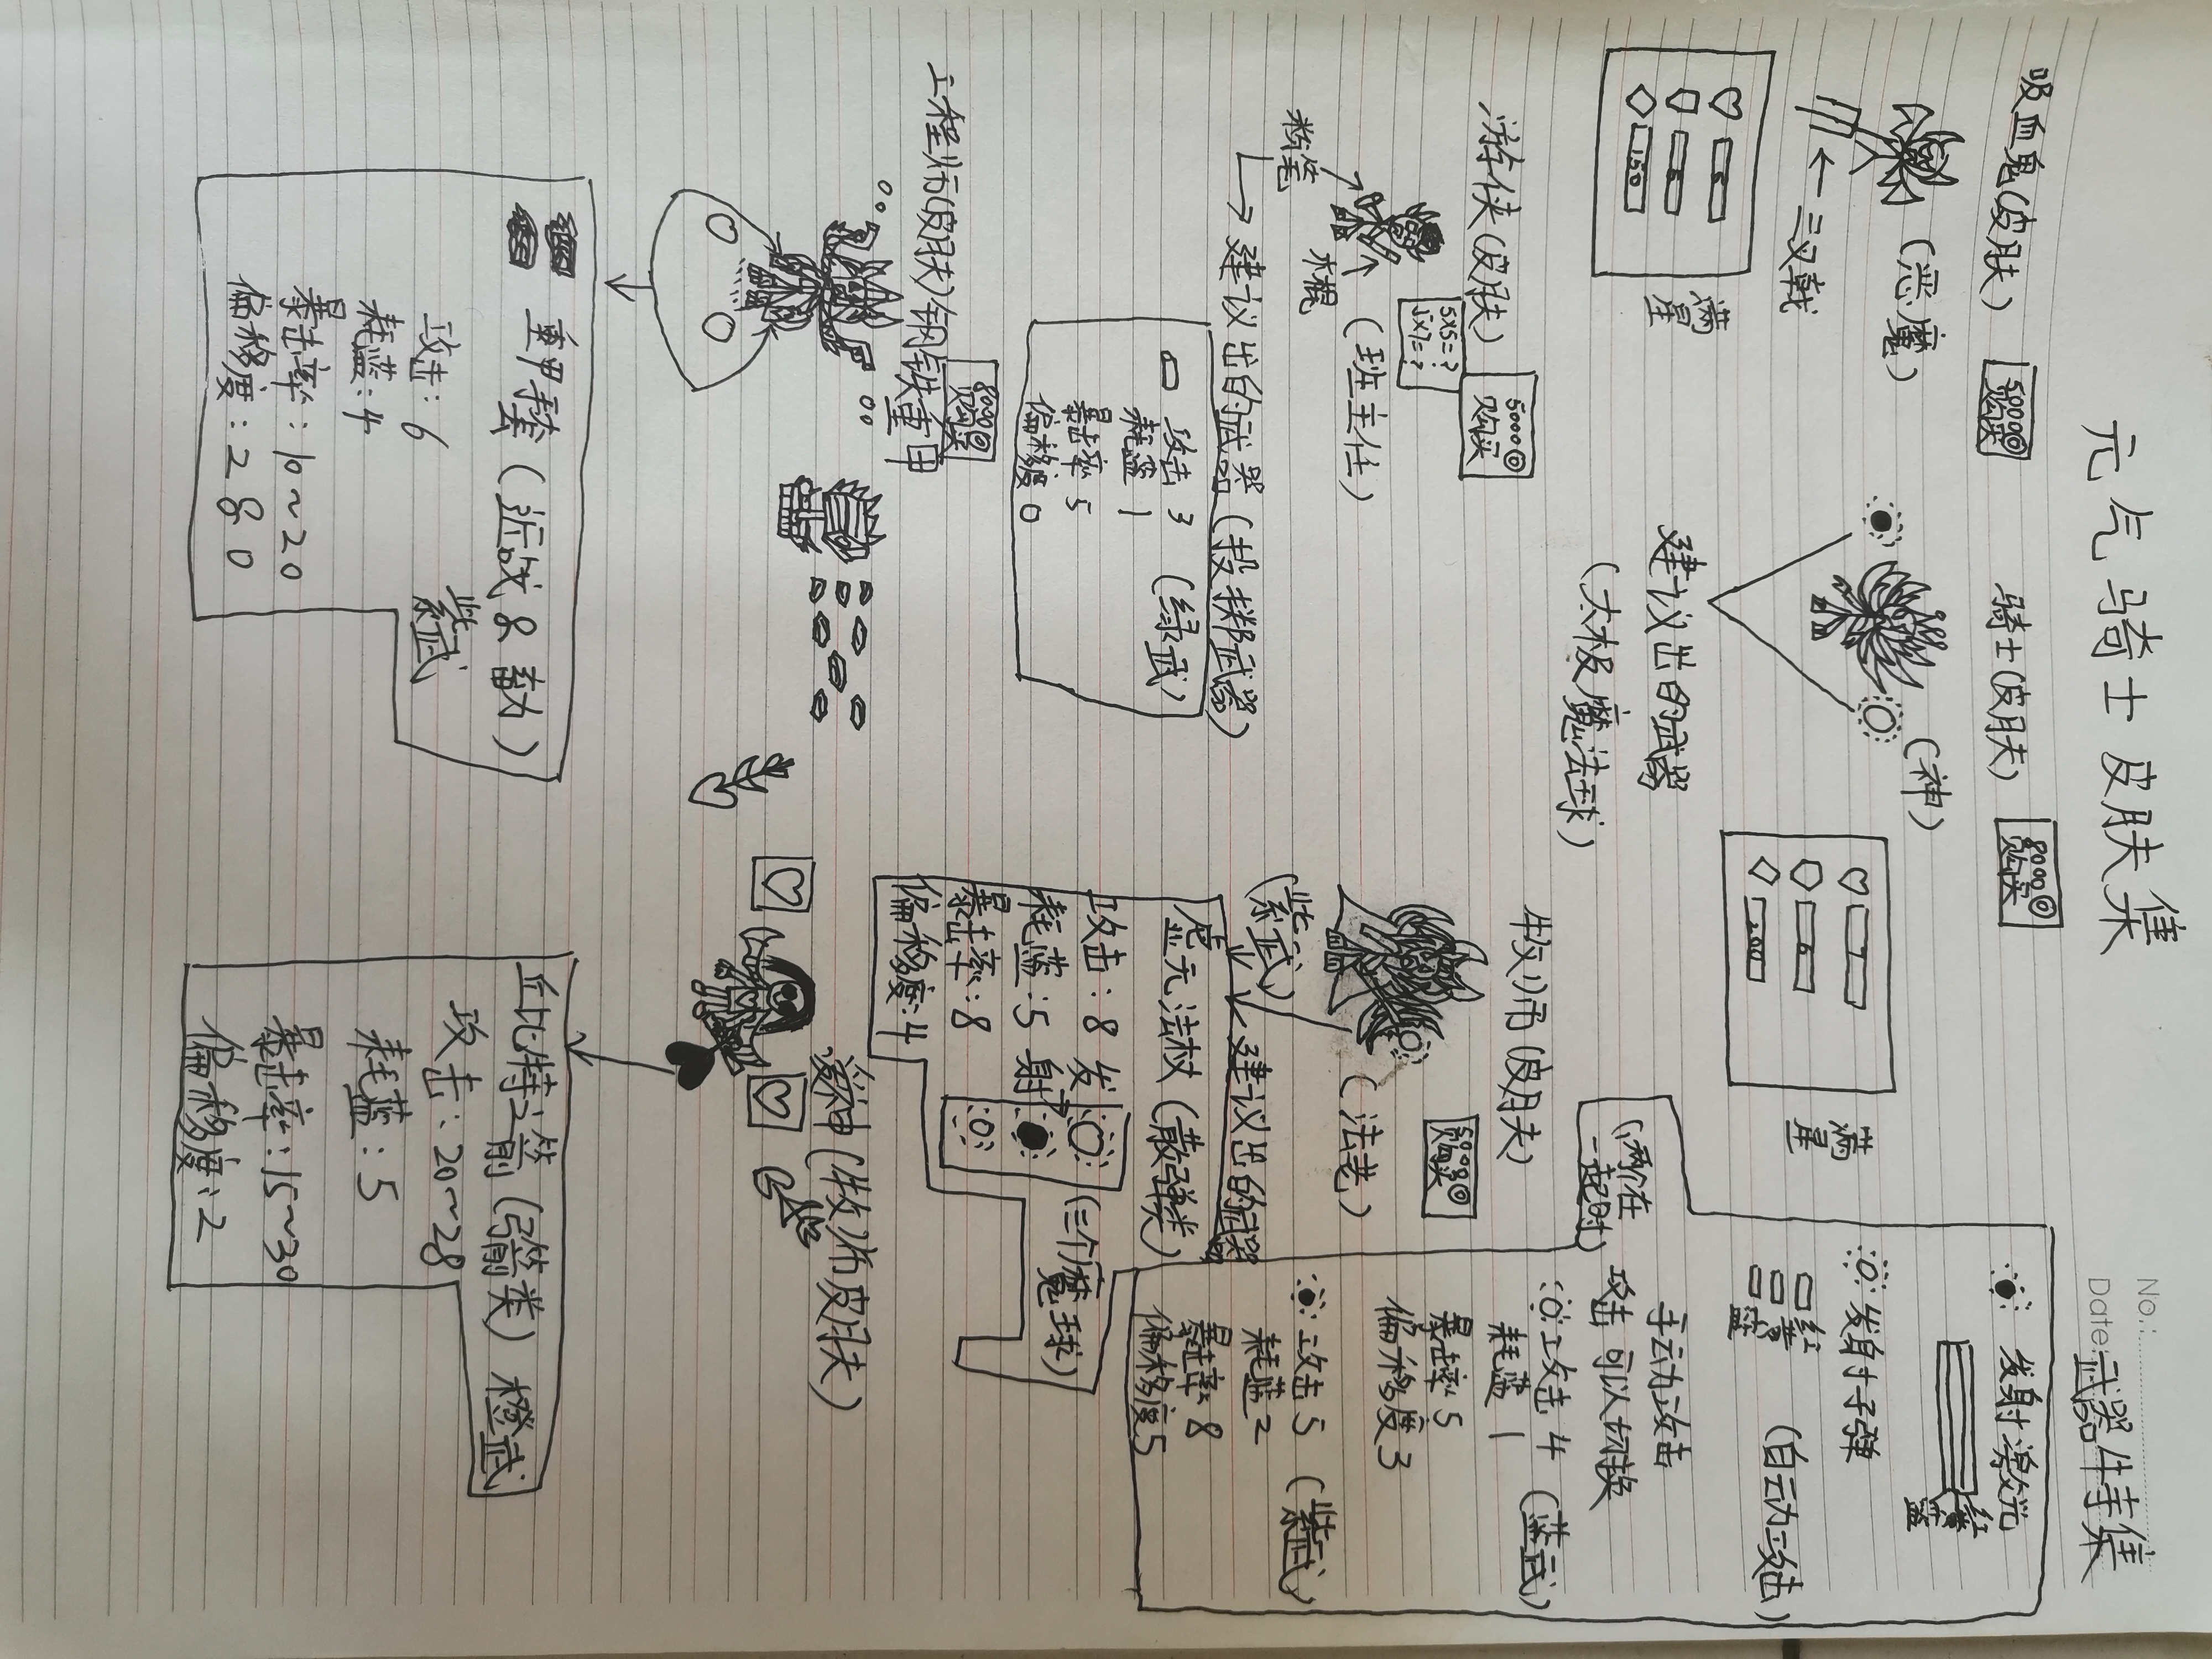 No.:
Date:
元气骑士皮肤集
武器件事集
吸血鬼(皮肤)
5000
购买
(恶魔)
←三叉戟
6
6
150
满星
骑士(皮肤)
8000
购买
(神)
建议出的武器
(太极魔法球)
7
6
200
满星
发射激光
红
黄
蓝
发射子弹
红
黄
蓝
(自动攻击)
手动攻击
攻击可以切换
(两个在
一起时)
攻击4 (蓝武)
耗蓝1
暴击率5
偏移度3
攻击5 (紫武)
耗蓝2
暴击率8
偏移度5
游侠(皮肤)
5000
购买
5×5=?
(班主任)
木棍
粉笔
建议出的武器(投掷武器)
攻击3 (绿武)
耗蓝1
暴击率5
偏移度0
牧师(皮肤)
5000
购买
(法老)
(紫武)
建议出的武器
虚无法杖(散弹类)
攻击:8
耗蓝:5
暴击率:8
偏移度:4
发射
(三个魔球)
工程师(皮肤)钢铁重甲
8000
购买
重甲拳套(近战&副)
紫武
攻击:6
耗蓝:4
暴击率:10~20
偏移度:280
爱神(牧师皮肤)
丘比特之箭(弓箭类)橙武
攻击:20~28
耗蓝:5
暴击率:15~30
偏移度:2